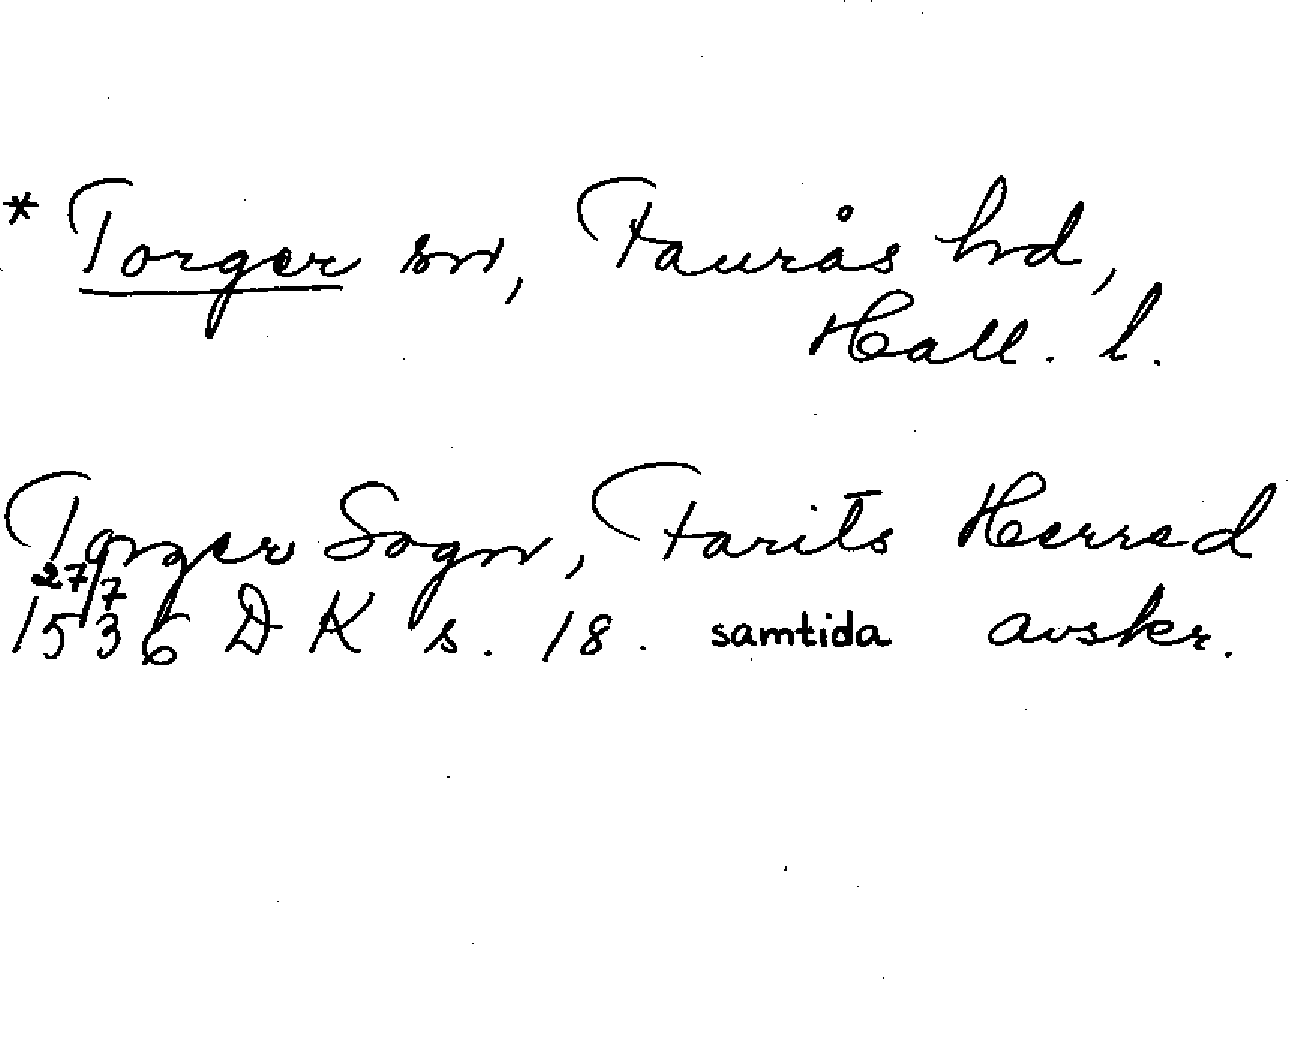 * Torger sn, Faurås hd,
Hall. l.
Torger Sogn, Farits Herred
27/7
1536 DK s. 18. samtida avskr.